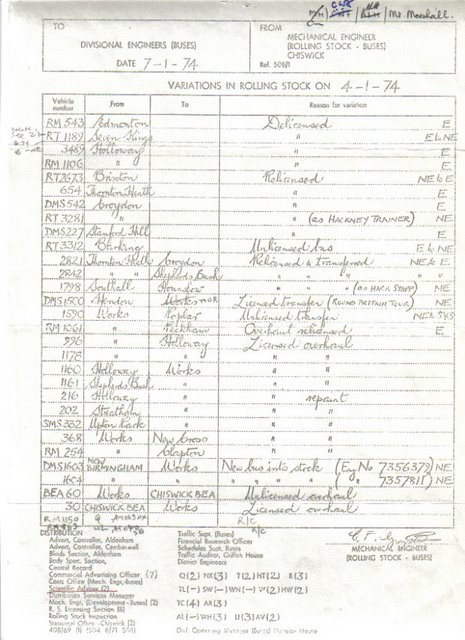 CWE
Mr. Marshall.
TO
DIVISIONAL ENGINEERS (BUSES)
DATE 7-1-74
FROM
MECHANICAL ENGINEER
(ROLLING STOCK - BUSES)
CHISWICK
Ref. 508/1
VARIATIONS IN ROLLING STOCK ON 4-1-74
Vehicle number From To Reason for variation
RM 543 Edmonton Delicensed E
RT 1189 Seven Kings " E to NE
3489 Holloway " E
RM 1106 " " E
RT 2673 Brixton Relicensed NE to E
654 Thornton Heath " E
DMS 542 Croydon " E
RT 3281 " " (as HACKNEY TRAINER) NE
DMS 227 Stamford Hill " E
RT 3312 Barking Unlicensed bus E to NE
2821 Thornton Heath Croydon Relicensed & transferred NE to E
2842 " " Shepherds Bush " " "
1798 Southall Hounslow " (as HACK STAFF) NE
DMS 1500 Hendon Works Licensed transfer (ROUND BRITAIN TOUR) NE
1590 Works Poplar Unlicensed transfer NE
RM 1061 " Peckham Overhaul relicensed E
596 " Holloway Licensed overhaul
1178 " " "
1160 Holloway Works "
1161 Shepherds Bush " "
216 Holloway " " repaint
202 Streatham " "
SMS 332 Upton Park " "
368 Works New Cross "
RM 254 " Clapton "
DMS 1603 MCW BIRMINGHAM Works New bus into stock (Eng No 7356379) NE
1604 " " " ( " " 7357811) NE
BEA 60 Works CHISWICK BEA Unlicensed overhaul
50 CHISWICK BEA Works Licensed overhaul
RM 1150
DISTRIBUTION
Advert. Controller, Aldenham
Advert. Controller, Camberwell
Blinds Section, Aldenham
Body Spec. Section,
Central Record
Commercial Advertising Officer (7)
Costs Office (Mech. Engr-Buses)
Scientific Adviser (2)
Distribution Services Manager
Mech. Engr. (Development - Buses) (2)
R. S. Licensing Section (6)
Rolling Stock Inspection
Statistical Office - Chiswick (2)
Traffic Supt. (Buses)
Financial Research Officer
Schedules Supt. Buses
Traffic Auditor, Griffith House
District Engineers
Q(2) NX(3) T(2) HT(2) R(3)
TL(-) SW(-) WN(-) W(2) HW(2)
TC(4) AR(3)
AL(-) WH(3) U(3) AV(2)
Div. Operating Manager (Buses) Manson House
MECHANICAL ENGINEER
(ROLLING STOCK - BUSES)